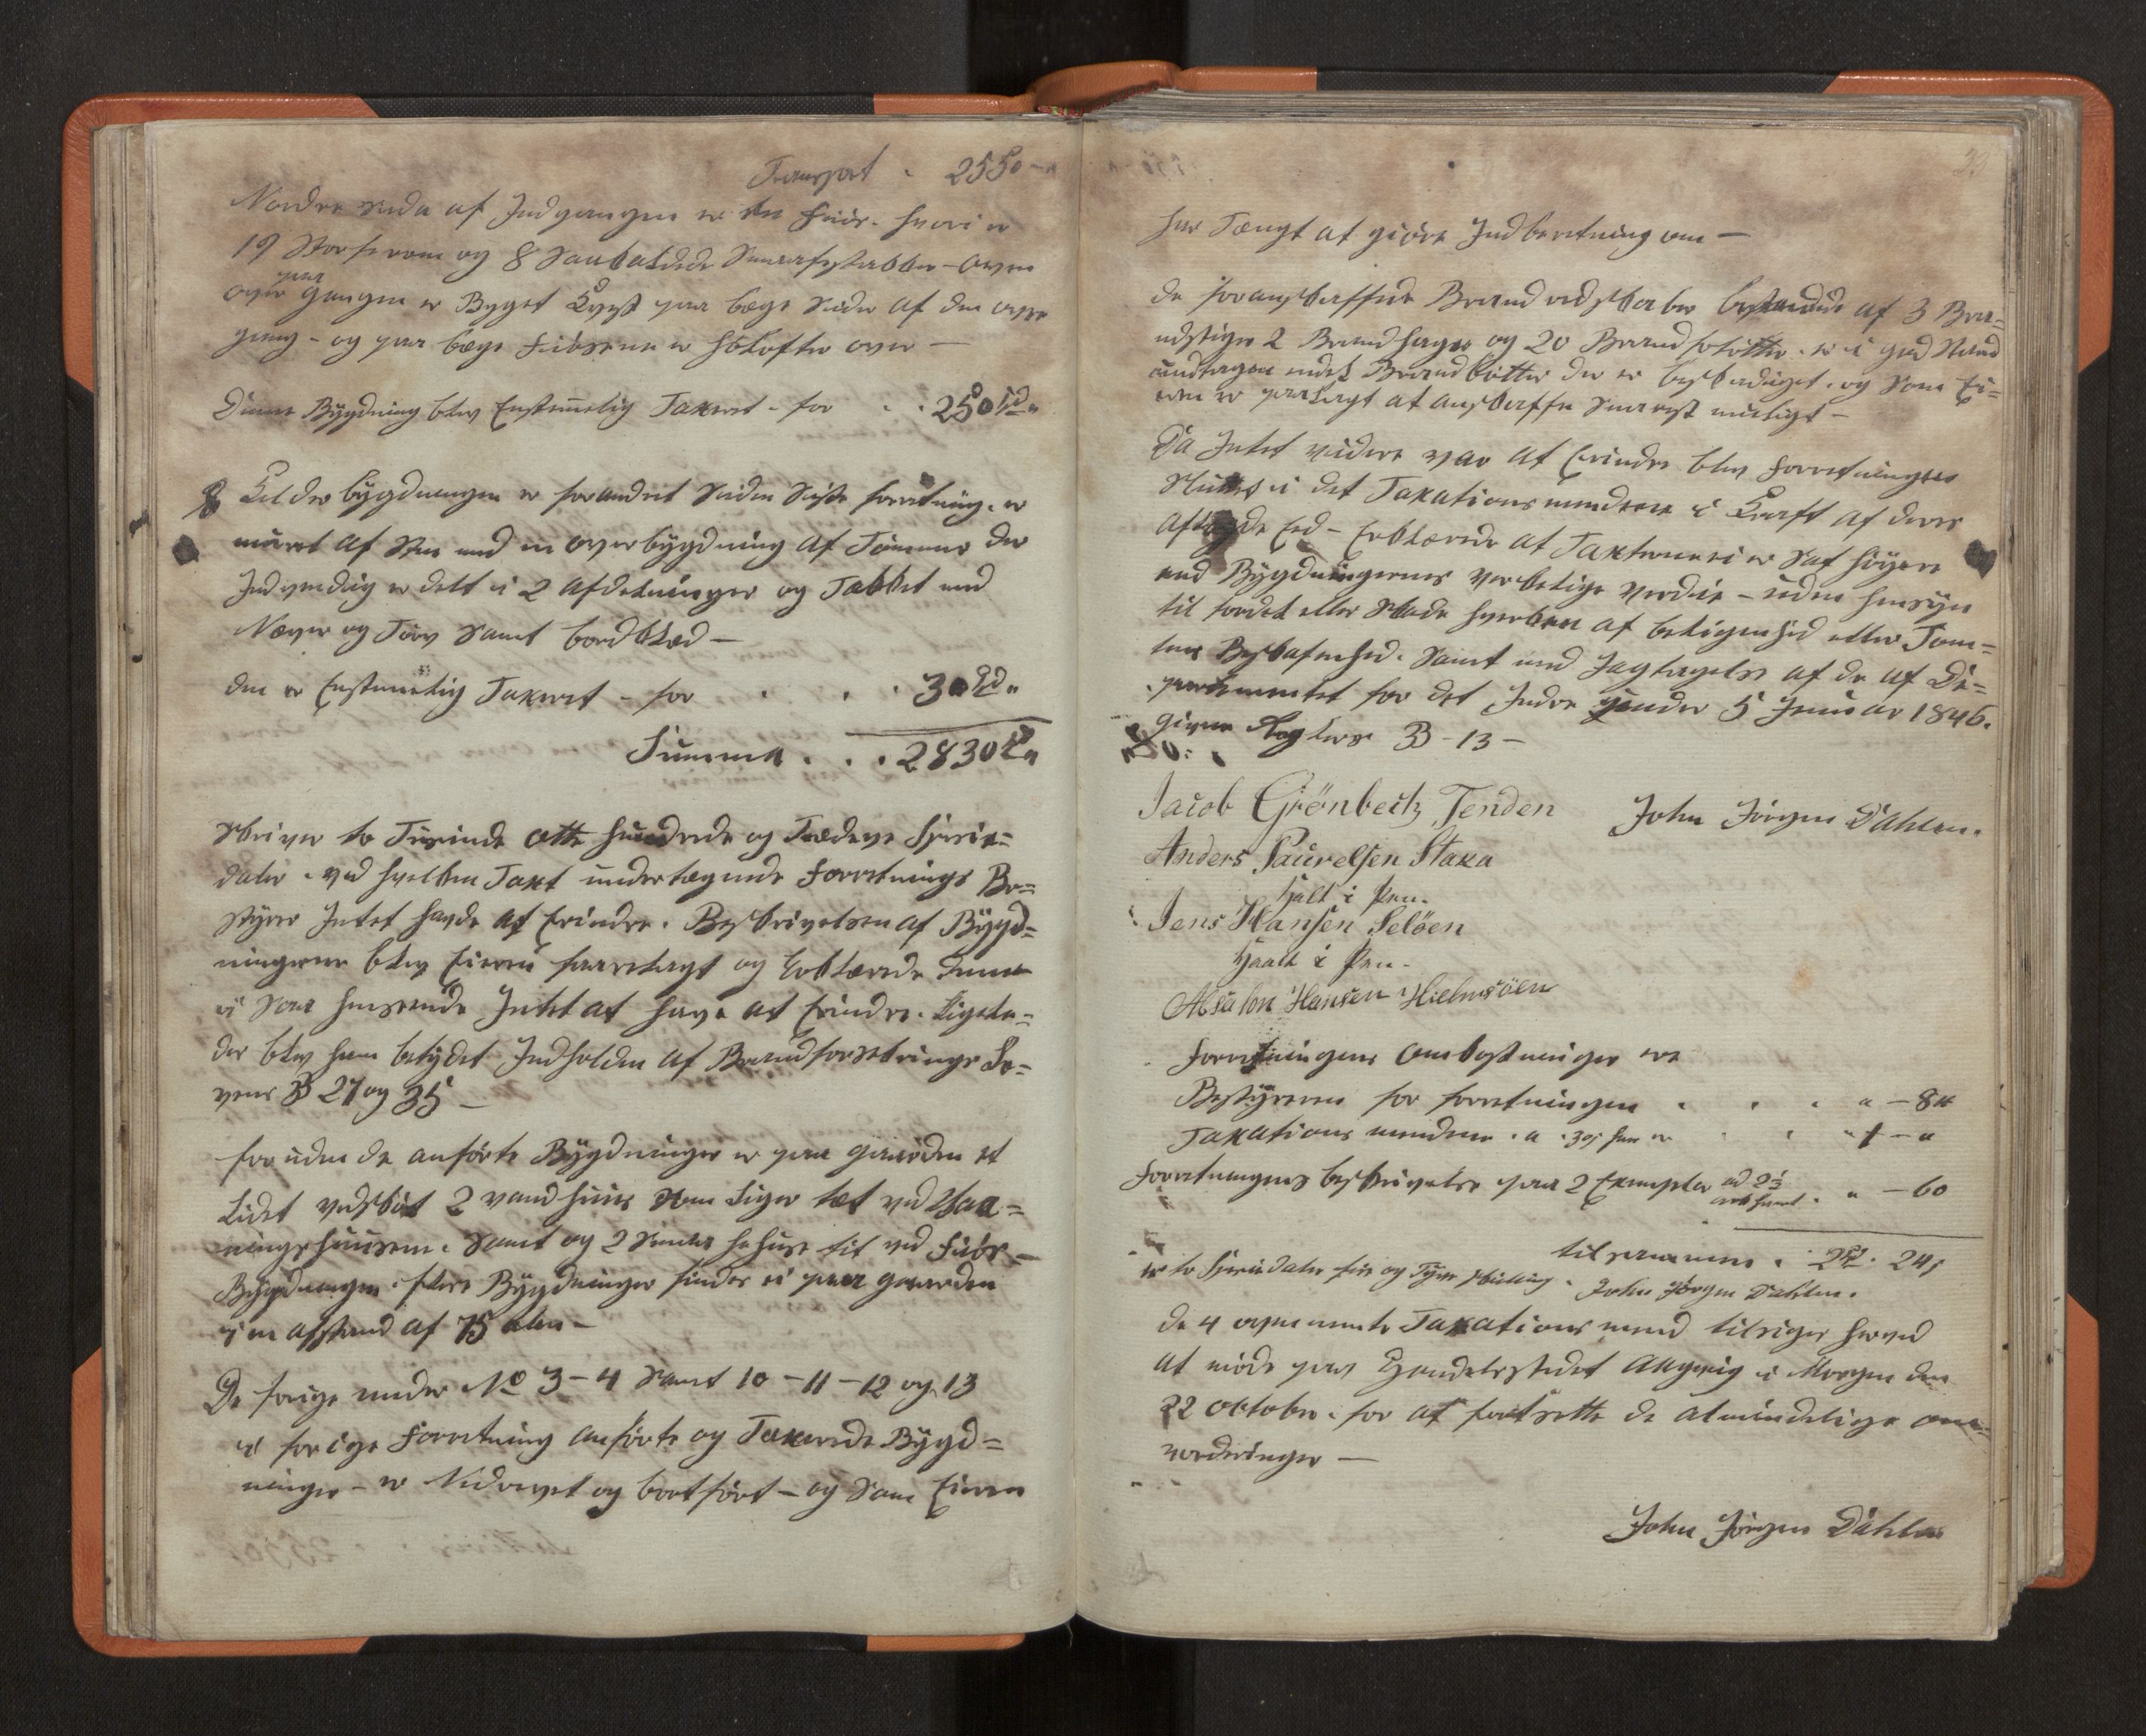 Transport . 2550 - "
Nordre Side af Indgangen er en Fiøs. hvori er
19 Storferom og 8 Saakaldede Smaafestabber - oven
over paa Gangen er Byget Qvist paa bege Sider af den øvre
gang - og paa bege Fiøsene er Høelofter over -
Denne Bygdning blev Enstemmelig Taxeret - for . . 250 Spd "
8 Kelderbygdningen er forandret Siden Siste forretning. er
muret af Sten med en overbygdning af Tømmer der
Indvendig er delt i 2 Afdelninger og Tækket med
Næver og Torv Samt bordklæd -
den er Enstemmelig Taxeret - for . . . 30 Spd "
Summa . . . 2830 Spd "
Skriver to Tusinde otte hundrede og Trædeve Specie=
daler. ved hvilken Taxt undertegnede Forretnings Be=
styrer Intet havde at Erindre. Beskrivelsen af Bygd=
ningerne blev Eieren forelagt og Erklærede denne
i Saa henseende Intet at have at Erindre. Ligele=
der blev ham betydet Indholden af Brandforsikrings Lo=
vens §§ 27 og 35 -
foruden de anførte Bygdninger er paa Gaarden et
Lidet vedskut 2 vandhuus Som Liger tæt ved Vaa=
ningshuusene. Samt og 2 Smaa tit ved Fiøs-
Bygdningen. flere Bygdninger findes ei paa gaarden
i en afstand af 75 alen -
De forige under No 3 - 4 Samt 10 - 11 - 12 og 13
i forige Forretning anførte og Taxerede Bygd=
ninger - er Nedrevet og bortført - og Som Eieren
23
har Tengt at giøre Indberetning om -
de foranskaffede Brandredskaber bestaaende af 3 Bra=
ndstiger 2 Brandhager og 20 Brandbøtter. er i god Stand
undtagen endel Brandbøtter der er beskadiget. og Som Ei=
eren er paalagt at anskaffe Snarest muligt -
Da Intet videre var at Erindre blev Forretningen
Sluttet i det Taxationsmændene i Kraft af deres
aflagde Eed - Erklærede at Taxterne ei er Sat høyere
end Bygdningernes verkelige verdie - uden hensyn
til fordel eller Skade hverken af beligenhed eller Tom=
tens Beskafenhed. Samt med Jagtagelse af de af De=
partementet for det Indre under 5 Januar 1846.
givne Regler §§ - 13 -
Jacob Grönbech Tenden John Jörgen Dahlen.
Anders Laurelsen Staxa
Hølt i Pen.
Jens Hansen Selöen
Haalt i Pen.
Absalon Hansen Hielmsöen
Forretningens omkostninger ere
Bestyreren for forretningen . . . . " - 84
Taxations mændene . a . 30s hver er . . " 1 - "
Forretningens beskrivelse paa 2 Exemplar ad 2½
ark hvert . " - 60
tilsammen . 2Spd. 24s
er to Speciedaler fire og Tyve skilling. John Jörgen Dahlen.
de 4 ovennevnte Taxationsmænd tilsiges herved
at møde paa Handelsstedet i Morgen den
22 oktober. for at fortsette de almindelige om=
vorderinger -
John Jörgen Dahlen